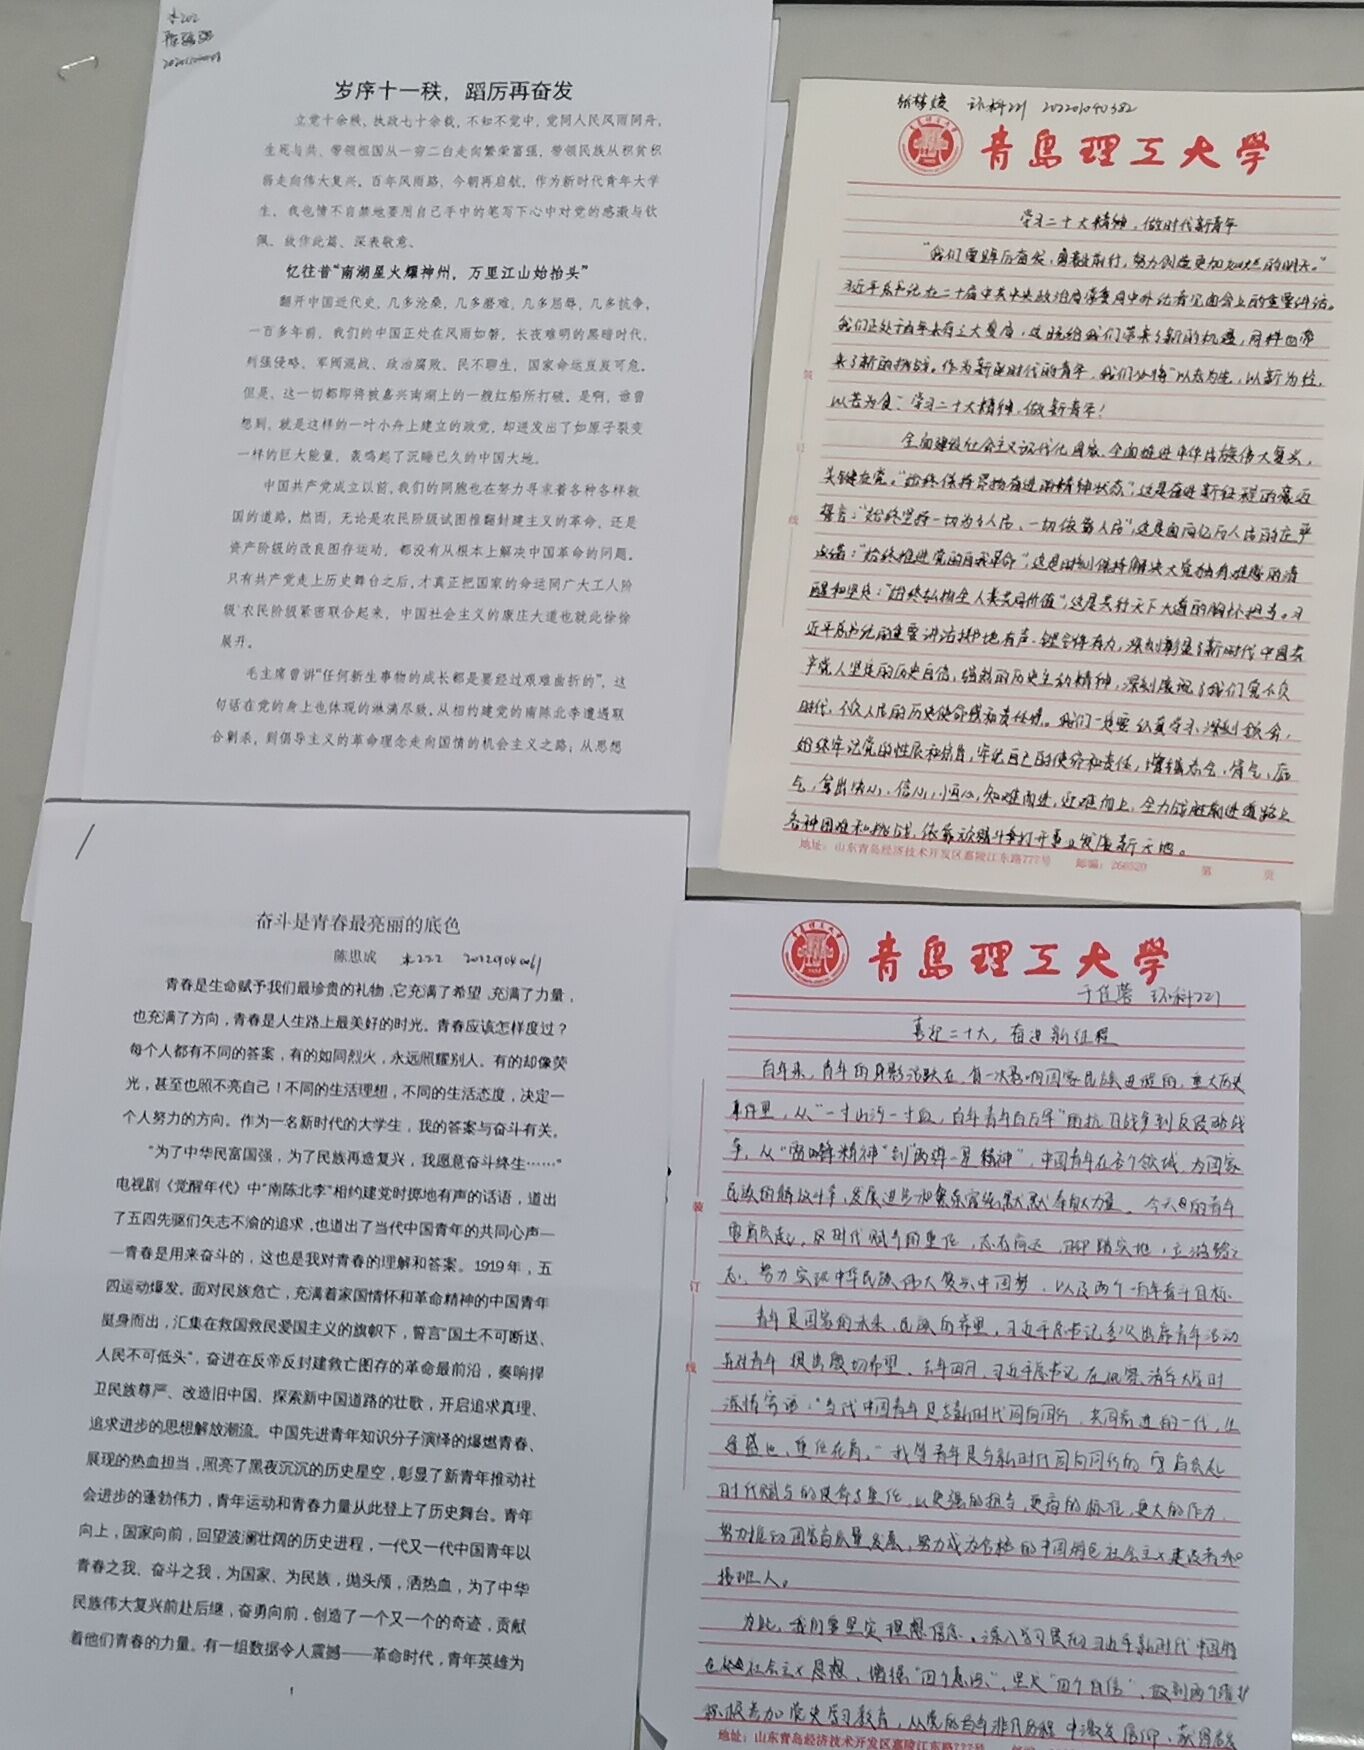 水202
岁序十一秩，蹈厉再奋发
立党十余秩、执政七十余载，不知不觉中，党同人民风雨同舟，
生死与共、带领祖国从一穷二白走向繁荣富强，带领民族从积贫积
弱走向伟大复兴。百年风雨路，今朝再启航，作为新时代青年大学
生，我也情不自禁地要用自己手中的笔写下心中对党的感激与钦
佩、故作此篇、深表敬意、
忆往昔“南湖星火耀神州，万里江山始抬头”
翻开中国近代史，几多沧桑，几多磨难，几多屈辱，几多抗争，
一百多年前，我们的中国正处在风雨如磐，长夜难明的黑暗时代，
列强侵略、军阀混战、政治腐败、民不聊生，国家命运岌岌可危。
但是，这一切都即将被嘉兴南湖上的一艘红船所打破。是啊，谁曾
想到，就是这样的一叶小舟上建立的政党，却迸发出了如原子裂变
一样的巨大能量，轰鸣起了沉睡已久的中国大地。
中国共产党成立以前，我们的同胞也在努力寻求着各种各样救
国的道路，然而，无论是农民阶级试图推翻封建主义的革命，还是
资产阶级的改良图存运动，都没有从根本上解决中国革命的问题。
只有共产党走上历史舞台之后，才真正把国家的命运同广大工人阶
级、农民阶级紧密联合起来，中国社会主义的康庄大道也就此徐徐
展开。
毛主席曾讲“任何新生事物的成长都是要经过艰难曲折的”，这
句话在党的身上也体现的淋漓尽致，从相约建党的南陈北李遭遇联
合剿杀，到倡导主义的革命理念走向国情的机会主义之路；从思想
环科221 202201040382
青岛理工大学
学习二十大精神，做时代新青年
“我们要踔厉奋发，勇毅前行，努力创造更加灿烂的明天。”
习近平总书记在二十届中共中央政治局常委同中外记者见面会上的重要讲话。
我们正处于百年未有之大变局，这既给我们带来了新的机遇，同样也带
来了新的挑战。作为新时代的青年，我们必将“以志为先，以新为径，
以苦为食”，学习二十大精神，做新青年！
全面建设社会主义现代化国家、全面推进中华民族伟大复兴，
关键在党。“始终保持昂扬奋进的精神状态”，这是奋进新征程的豪迈
誓言；“始终坚持一切为了人民、一切依靠人民”，这是面向亿万人民的庄严
承诺；“始终推进党的自我革命”，这是时刻保持解决大党独有难题的清
醒和坚定；“始终弘扬全人类共同价值”，这是天行天下大道的胸怀担当。习
近平总书记的重要讲话掷地有声、铿锵有力，深刻彰显了新时代中国共
产党人坚定的历史自信，强烈的历史主动精神，深刻展现了我们党不负
时代、不负人民的历史使命感和责任感。我们一定要认真学习、深刻领会，
始终牢记党的性质和宗旨，牢记自己的使命和责任，增强志气、骨气、底
气，拿出决心、信心、恒心，知难而进，迎难而上，全力战胜前进道路上
各种困难和挑战，依靠顽强斗争打开事业发展新天地。
地址：山东青岛经济技术开发区嘉陵江东路777号 邮编：266520 第 页
装
订
线
奋斗是青春最亮丽的底色
陈思成 水222 202201040061
青春是生命赋予我们最珍贵的礼物，它充满了希望，充满了力量，
也充满了方向，青春是人生路上最美好的时光。青春应该怎样度过？
每个人都有不同的答案，有的如同烈火，永远照耀别人。有的却像荧
光，甚至也照不亮自己！不同的生活理想，不同的生活态度，决定一
个人努力的方向。作为一名新时代的大学生，我的答案与奋斗有关。
“为了中华民富国强，为了民族再造复兴，我愿意奋斗终生……”
电视剧《觉醒年代》中“南陈北李”相约建党时掷地有声的话语，道出
了五四先驱们矢志不渝的追求，也道出了当代中国青年的共同心声—
—青春是用来奋斗的，这也是我对青春的理解和答案。1919 年，五
四运动爆发。面对民族危亡，充满着家国情怀和革命精神的中国青年
挺身而出，汇集在救国救民爱国主义的旗帜下，誓言“国土不可断送、
人民不可低头”，奋进在反帝反封建救亡图存的革命最前沿，奏响捍
卫民族尊严、改造旧中国、探索新中国道路的壮歌，开启追求真理、
追求进步的思想解放潮流。中国先进青年知识分子演绎的爆燃青春、
展现的热血担当，照亮了黑夜沉沉的历史星空，彰显了新青年推动社
会进步的蓬勃伟力，青年运动和青春力量从此登上了历史舞台。青年
向上，国家向前，回望波澜壮阔的历史进程，一代又一代中国青年以
青春之我、奋斗之我，为国家、为民族，抛头颅，洒热血，为了中华
民族伟大复兴前赴后继，奋勇向前，创造了一个又一个的奇迹，贡献
着他们青春的力量。有一组数据令人震撼——革命时代，青年英雄为
1
青岛理工大学
于佳蓉 环科221
喜迎二十大，奋进新征程
百年来，青年的身影活跃在每一次影响国家民族进程的重大历史
事件里，从“一寸山河一寸血，百年青年百万军”的抗日战争到反侵略战
争，从“雷锋精神”到“两弹一星精神”，中国青年在各个领域，为国家
民族的解放斗争，发展进步和繁荣富强默默奉献力量。今天的青年
要肩负起，这时代赋予的重任，志存高远，脚踏实地，立鸿鹄之
志，努力实现中华民族伟大复兴中国梦，以及两个一百年奋斗目标。
青年是国家的未来，民族的希望，习近平总书记多次出席青年活动
并对青年提出殷切希望。去年四月，习近平总书记在视察清华大学时
深情寄语：“当代中国青年是与新时代同向同行、共同前进的一代，生
逢盛世，重任在肩。”我等青年是与新时代同向同行的，肩负起
时代赋予的使命与重任，以更强的担当，更高的标准，更大的作为，
努力推动国家高质量发展，努力成为合格的中国特色社会主义建设者和
接班人。
为此，我们要坚定理想信念。深入学习贯彻习近平新时代中国特
色社会主义思想，增强“四个意识”，坚定“四个自信”，做到两个维护
积极参加党史学习教育，从党的百年非凡历程中激发信仰、获得启发
地址：山东青岛经济技术开发区嘉陵江东路777号
装
订
线